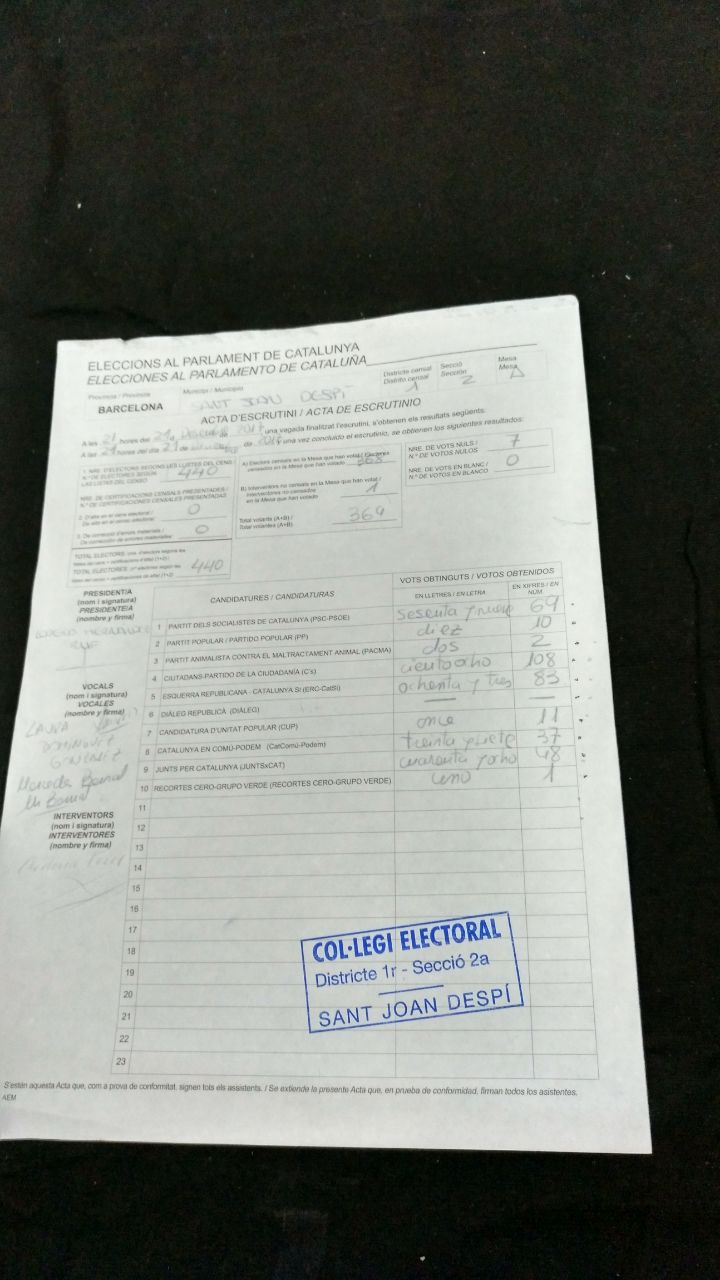 ELECCIONS AL PARLAMENT DE CATALUNYA
ELECCIONES AL PARLAMENTO DE CATALUÑA
Província / Provincia
Municipi / Municipio
Districte censal
Distrito censal
1
Secció
Sección
2
Mesa
Mesa
A
BARCELONA
SANT JOAN DESPÍ
ACTA D'ESCRUTINI / ACTA DE ESCRUTINIO
A les 21 hores del 21 de 2017 una vegada finalitzat l'escrutini, s'obtenen els resultats següents:
A las 21 horas del día 21 de de 2017 una vez concluido el escrutinio, se obtienen los siguientes resultados:
1. NRE. D'ELECTORS SEGONS LES LLISTES DEL CENS /
N.º DE ELECTORES SEGÚN
LAS LISTAS DEL CENSO
440
NRE. DE CERTIFICACIONS CENSALS PRESENTADES /
N.º DE CERTIFICACIONES CENSALES PRESENTADAS
2. D'alta en el cens electoral /
De alta en el censo electoral:
0
3. De correcció d'errors materials /
De corrección de errores materiales:
0
440
A) Electors censats en la Mesa que han votat /
censados en la Mesa que han votado
B) Interventors no censats en la Mesa que han votat /
Interventores no censados
en la Mesa que han votado
1
Total votants (A+B) /
Total votantes (A+B)
364
NRE. DE VOTS NULS /
N.º DE VOTOS NULOS
7
NRE. DE VOTS EN BLANC /
N.º DE VOTOS EN BLANCO
0
PRESIDENT/A
(nom i signatura)
PRESIDENTE/A
(nombre y firma)
VOCALS
(nom i signatura)
VOCALES
(nombre y firma)
LAURA
INTERVENTORS
(nom i signatura)
INTERVENTORES
(nombre y firma)
CANDIDATURES / CANDIDATURAS
VOTS OBTINGUTS / VOTOS OBTENIDOS
EN LLETRES / EN LETRA
EN XIFRES / EN NÚM.
1 PARTIT DELS SOCIALISTES DE CATALUNYA (PSC-PSOE) sesenta y nueve 69
2 PARTIT POPULAR / PARTIDO POPULAR (PP) diez 10
3 PARTIT ANIMALISTA CONTRA EL MALTRACTAMENT ANIMAL (PACMA) dos 2
4 CIUTADANS-PARTIDO DE LA CIUDADANÍA (C's) ciento ocho 108
5 ESQUERRA REPUBLICANA - CATALUNYA SÍ (ERC-CatSí) ochenta y tres 83
6 DIÀLEG REPUBLICÀ (DIÀLEG) — —
7 CANDIDATURA D'UNITAT POPULAR (CUP) once 11
8 CATALUNYA EN COMÚ-PODEM (CatComú-Podem) treinta y siete 37
9 JUNTS PER CATALUNYA (JUNTSxCAT) cuarenta y ocho 48
10 RECORTES CERO-GRUPO VERDE (RECORTES CERO-GRUPO VERDE) uno 1
11
12
13
14
15
16
17
18
19
20
21
22
23
COL·LEGI ELECTORAL
Districte 1r - Secció 2a
SANT JOAN DESPÍ
S'estén aquesta Acta que, com a prova de conformitat, signen tots els assistents. / Se extiende la presente Acta que, en prueba de conformidad, firman todos los asistentes.
AEM